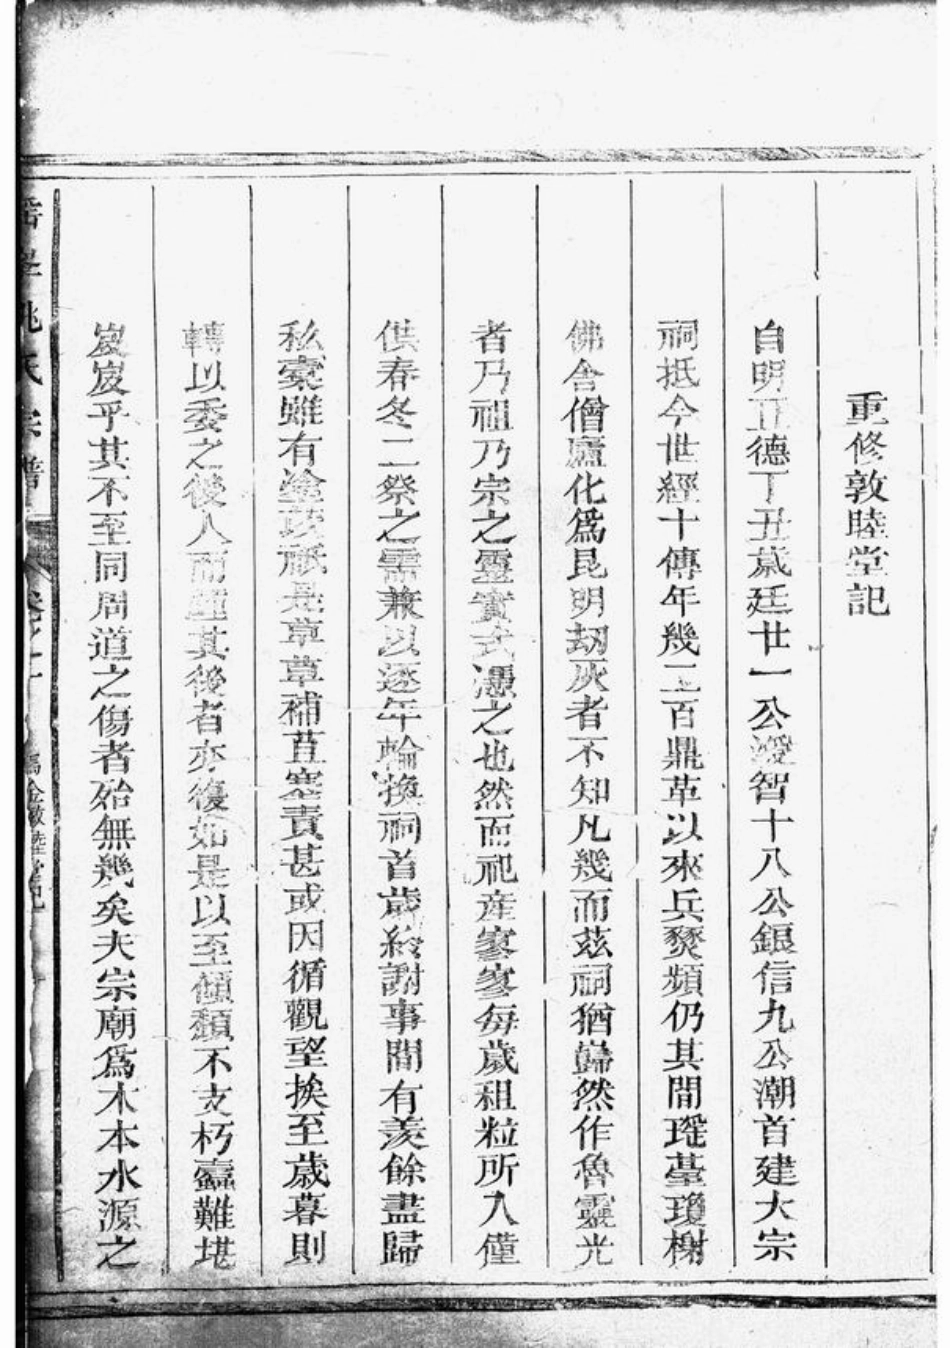 重修敦睦堂記
自明正德丁丑歲廷廿一公澄智十八公銀信九公潮首建大宗
祠抵今世經十傳年幾二百鼎革以來兵燹頻仍其間瑤臺瓊榭
佛舍僧廬化爲昆明劫灰者不知凡幾而茲祠猶巋然作魯靈光
者乃祖乃宗之靈實式憑之也然而祀産寥寥每歲租粒所入僅
供春冬二祭之需兼以逐年輪換祠首歲終謝事間有羨餘盡歸
私橐雖有塗茨祇是草草補苴塞責甚或因循觀望挨至歲暮則
轉以委之後人而踵其後者亦復如是以至傾頹不支朽蠹難堪
岌岌乎其不至同周道之傷者殆無幾矣夫宗廟爲木本水源之
姚氏宗譜